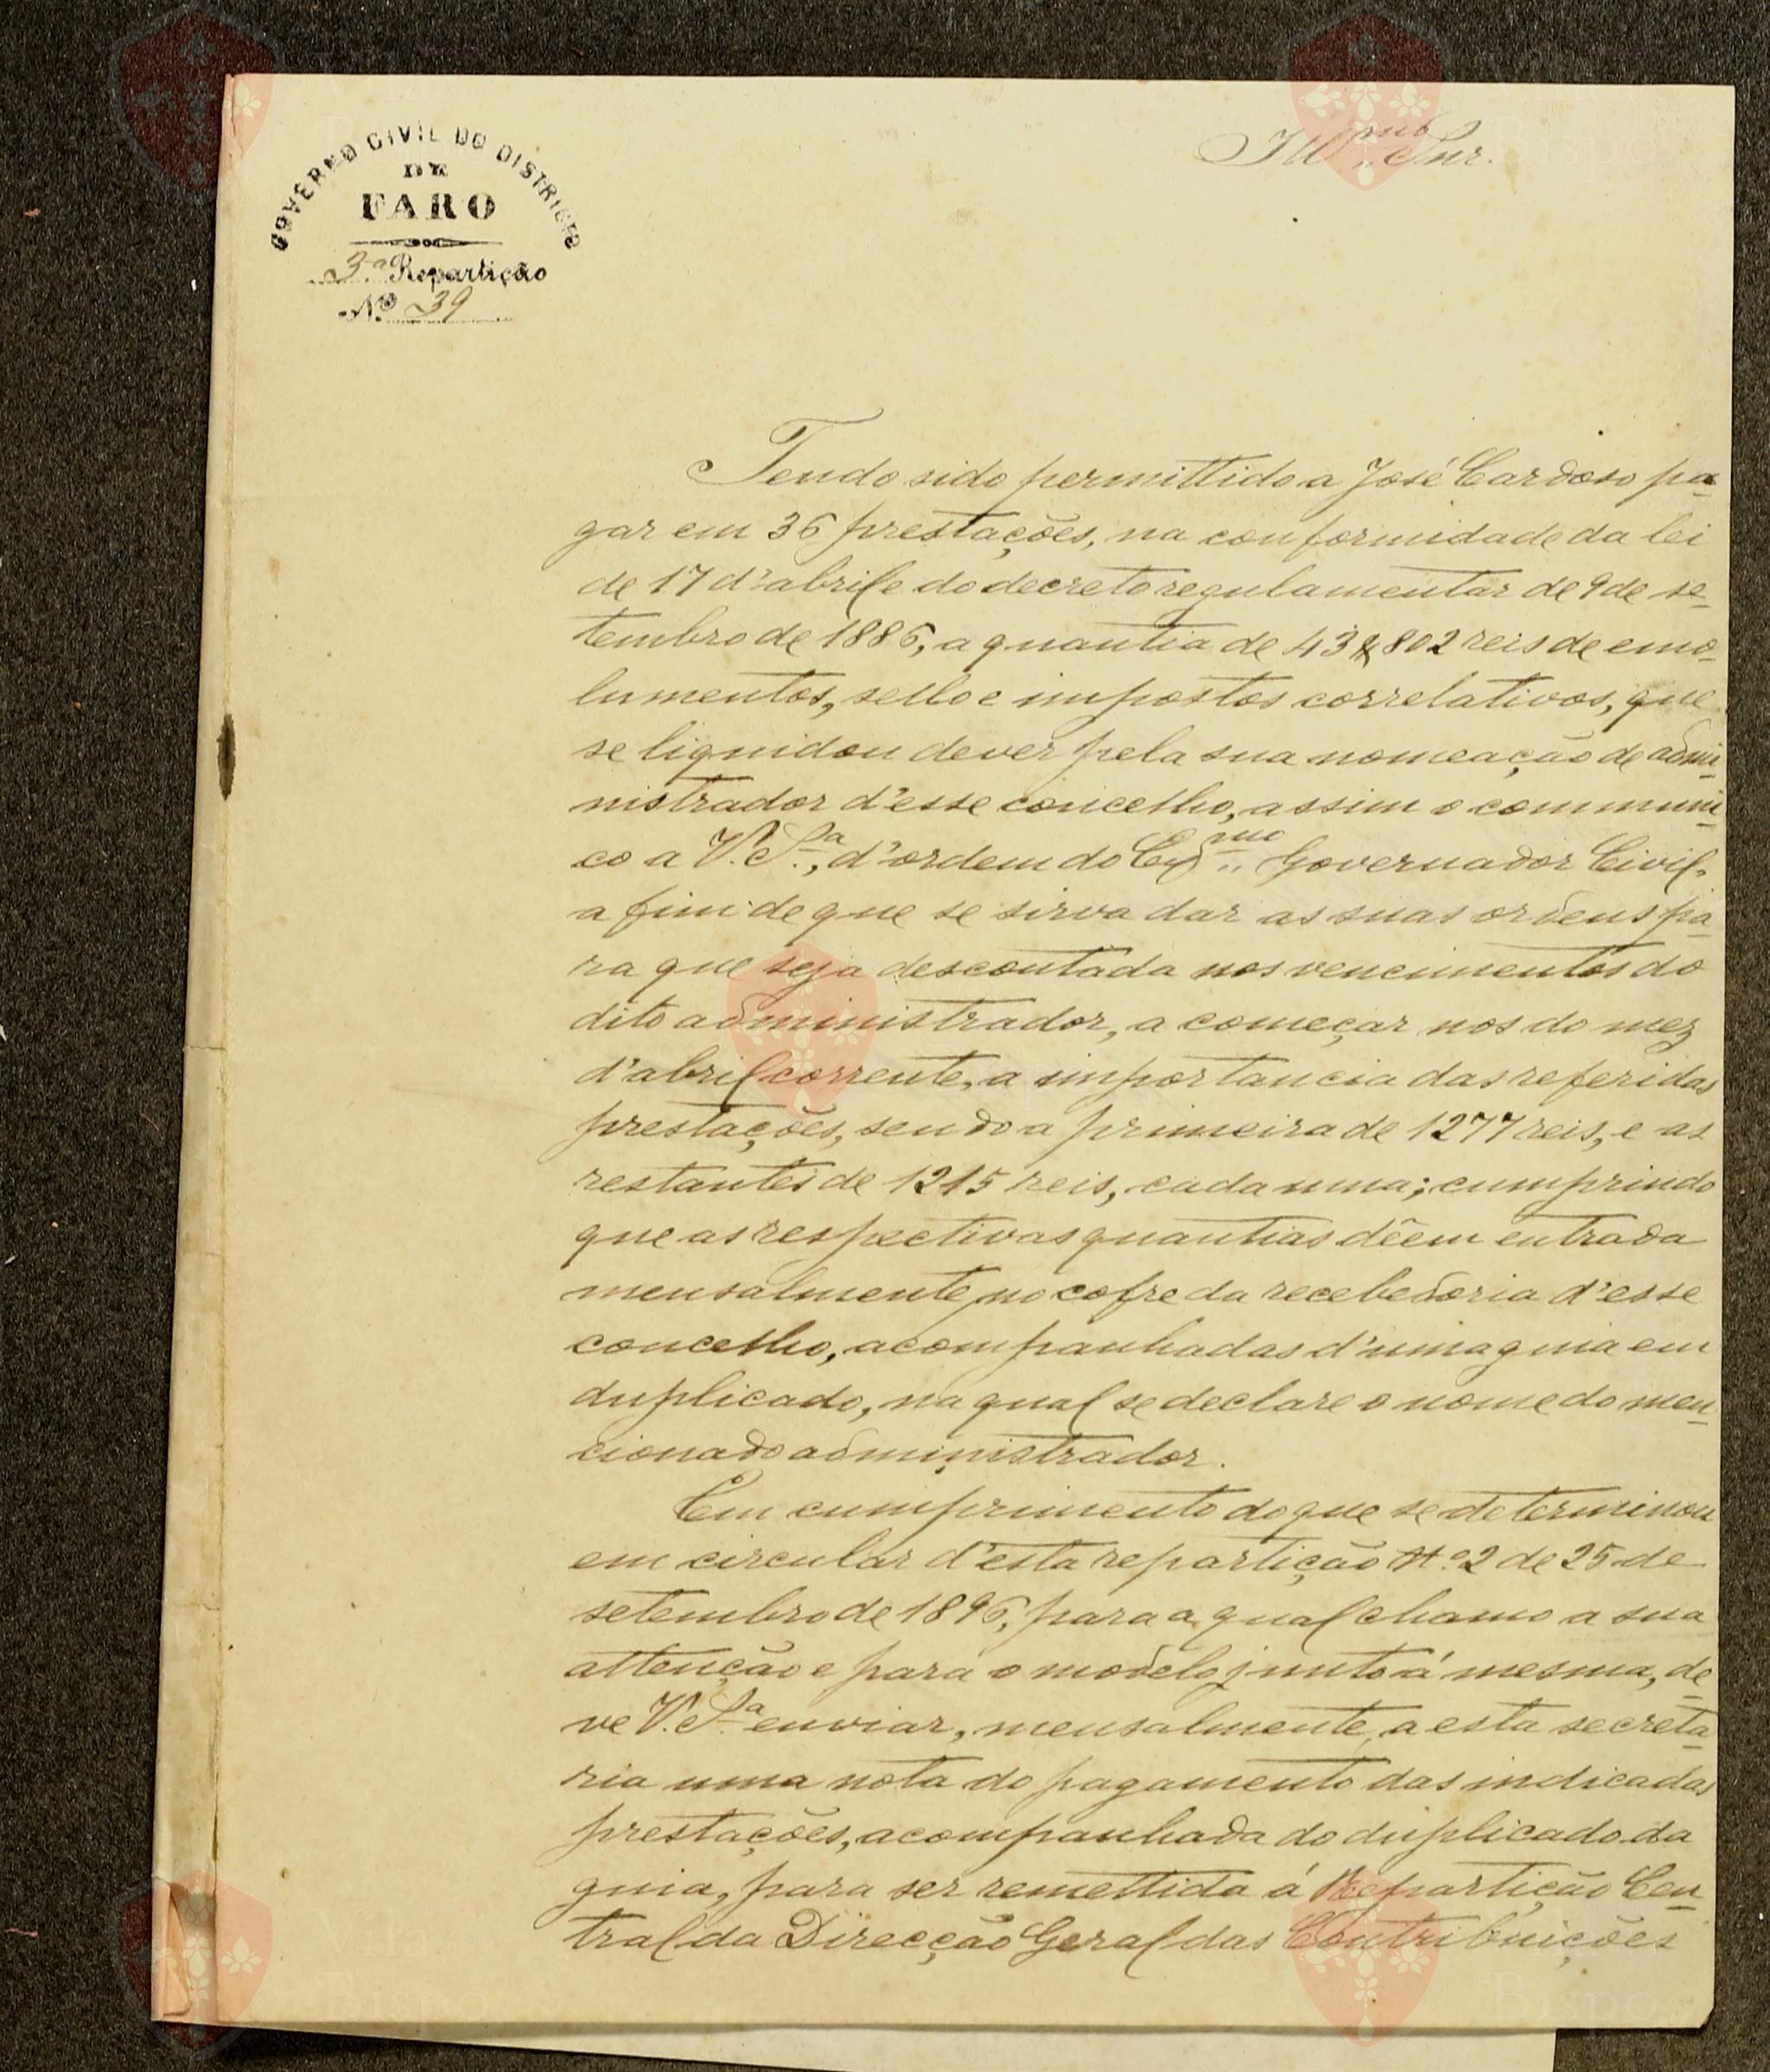 GOVERNO CIVIL DO DISTRICTO
DE
FARO
3ª Repartição
Nº 39
Illmo Snr.
Tendo sido permittido a José Cardoso pa-
gar em 36 prestações, na conformidade da lei
de 17 d'abril e do decreto regulamentar de 9 de se-
tembro de 1886, a quantia de 43$802 reis de emo-
lumentos, sello e impostos correlativos, que
se liquidou dever pela sua nomeação de admi-
nistrador d'esse concelho, assim o communi-
co a V. Sª, d'ordem do Exmo Governador Civil,
a fim de que se sirva dar as suas ordens pa-
ra que seja descontada nos vencimentos do
dito administrador, a começar nos do mez
d'abril corrente, a importancia das referidas
prestações, sendo a primeira de 1277 reis, e as
restantes de 1215 reis, cada uma; cumprindo
que as respectivas quantias dêem entrada
mensalmente no cofre da recebedoria d'esse
concelho, acompanhadas d'uma guia em
duplicado, na qual se declare o nome do men-
cionado administrador.
Em cumprimento do que se determinou
em circular d'esta repartição Nº 2 de 25 de
setembro de 1896, para a qual chamo a sua
attenção e para o modelo junto á mesma, de-
ve V. Sª enviar, mensalmente, a esta secreta-
ria uma nota do pagamento das indicadas
prestações, acompanhada do duplicado da
guia, para ser remettida á Repartição Cen-
tral da Direcção Geral das Contribuições
Bispo